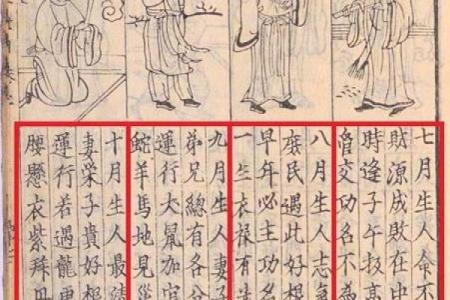 七月生人命不
財源成敗在出
時逢子午扳高
交功名不為
八月生人志氣
庶民遇此好根
早年必主功名
一生衣祿有
九月生人妻子
弟兄總有各分
運行犬鼠加官
蛇羊馬地見災
十月生人最
妻榮子貴好根
運行若遇龍
腰懸衣紫拜丹